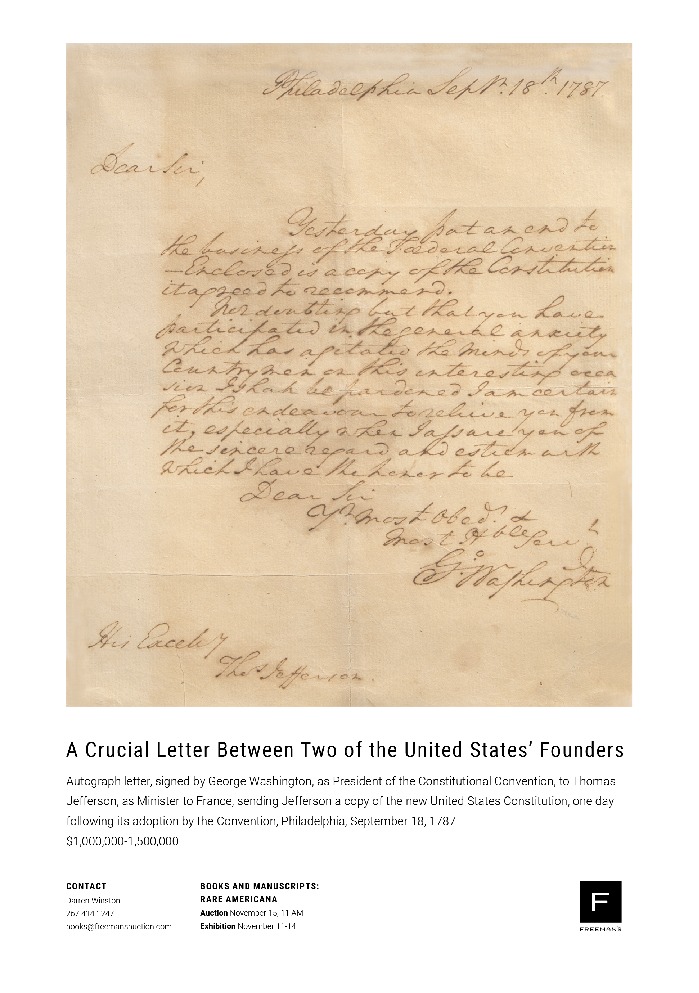 Philadelphia Sepbr. 18th. 1787
Dear Sir,
Yesterday put an end to
the business of the Fœderal Convention
—Enclosed is a copy of the Constitution
it agreed to recommend.
Not doubting but that you have
participated in the general anxiety
which has agitated the minds of your
Countrymen on this interesting occa
sion I shall be pardoned I am certain
for this endeavour to relieve you from
it, especially when I assure you of
the sincere regard and esteem with
which I have the honor to be
Dear Sir
Yr. most Obedt. &
most Hble Servt
Go. Washington
His Excely
Thos. Jefferson.
A Crucial Letter Between Two of the United States’ Founders
Autograph letter, signed by George Washington, as President of the Constitutional Convention, to Thomas
Jefferson, as Minister to France, sending Jefferson a copy of the new United States Constitution, one day
following its adoption by the Convention, Philadelphia, September 18, 1787
$1,000,000-1,500,000
CONTACT
Darren Winston
books@freemansauction.com
BOOKS AND MANUSCRIPTS:
RARE AMERICANA
Auction November 15, 11 AM
Exhibition November 11-14
F
FREEMAN'S